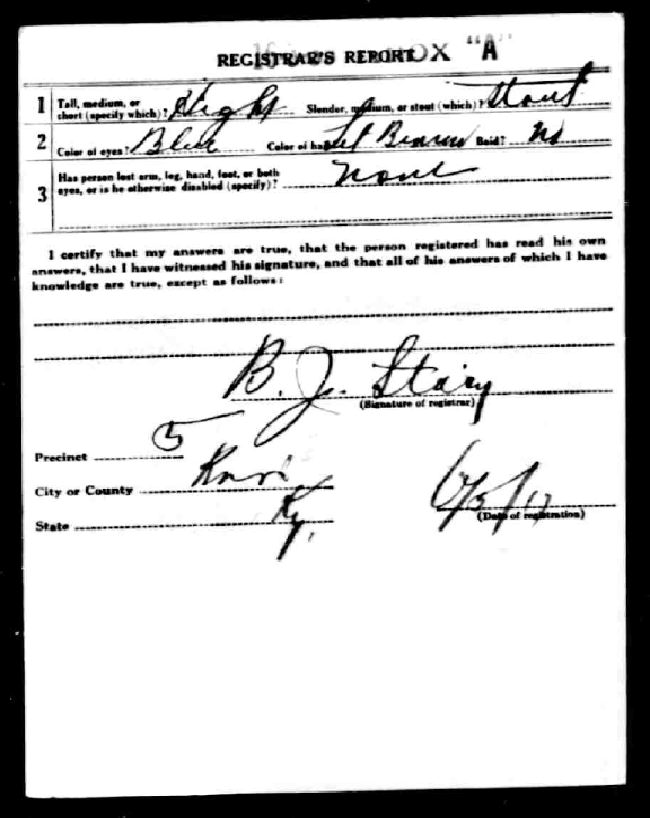 REGISTRAR'S REPORT OX "A"
1 Tall, medium, or short (specify which)? Slender, medium, or stout (which)? Stout
2 Color of eyes? Blue Color of hair? Lt Brown Bald? No
3 Has person lost arm, leg, hand, foot, or both
eyes, or is he otherwise disabled (specify)? None
I certify that my answers are true, that the person registered has read his own
answers, that I have witnessed his signature, and that all of his answers of which I have
knowledge are true, except as follows:
B. J.
(Signature of registrar)
Precinct 5
City or County
State Ky.
6/5/17
(Date of registration)